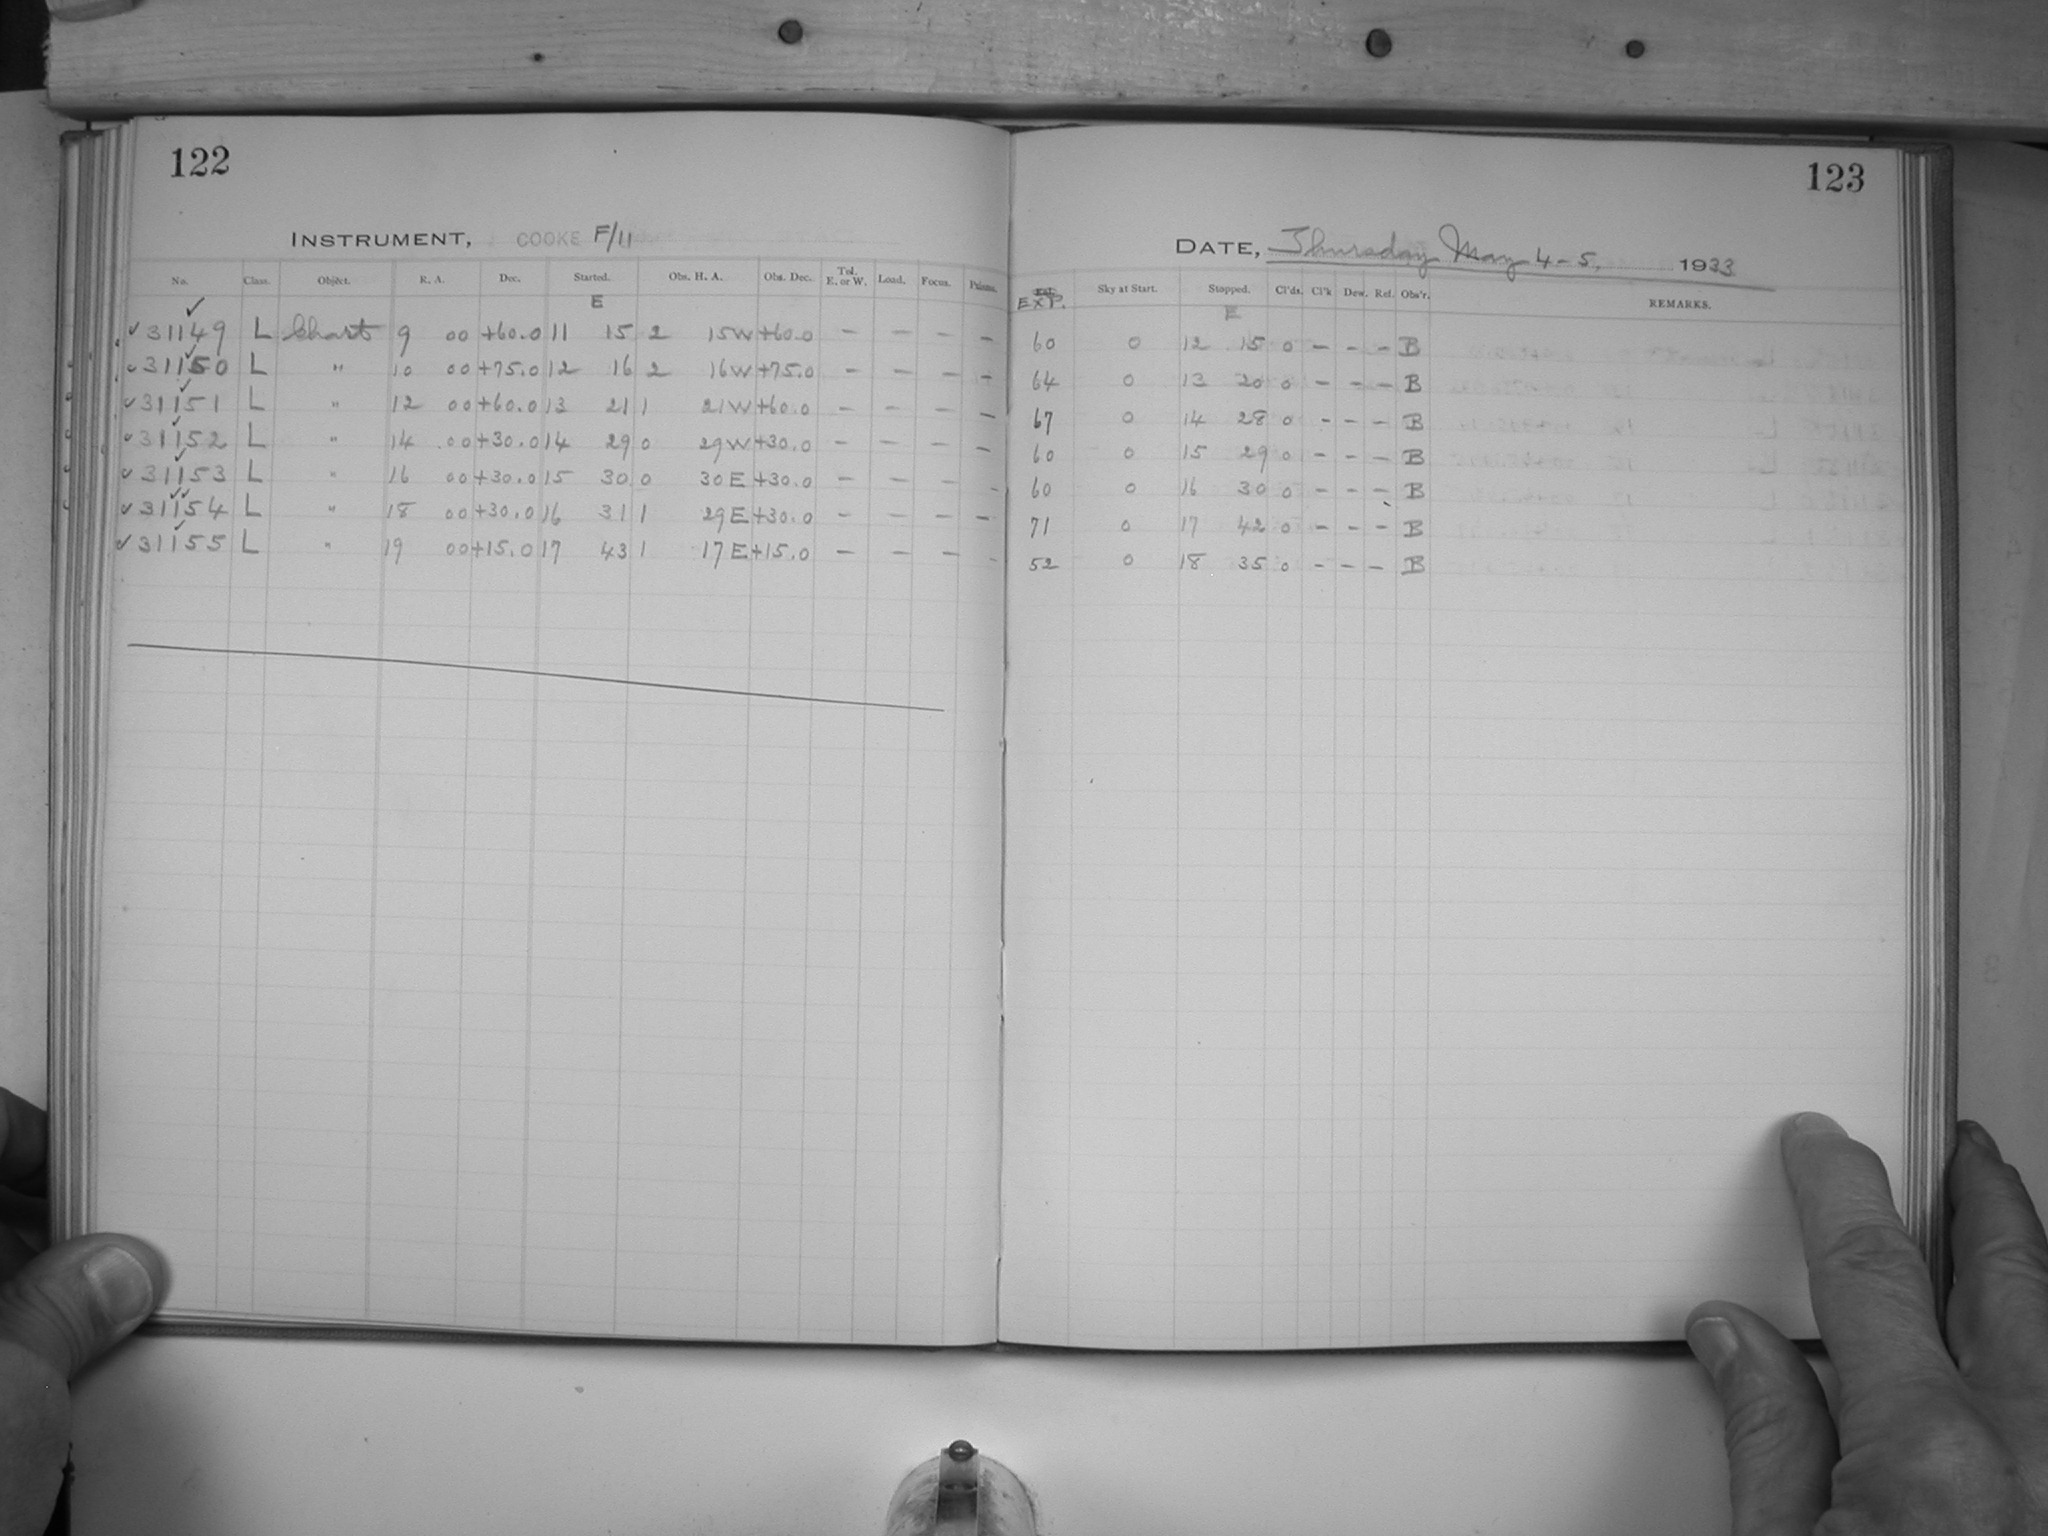 122
INSTRUMENT, COOKE F/11
No. Class. Object. R. A. Dec. Started. Obs. H. A. Obs. Dec. Tel. E. or W. Load. Focus. Prisms.
E
✓
✓ 31149 L Chart 9 00 +60.0 11 15 2 15 W +60.0 – – – –
✓ 31150 L " 10 00 +75.0 12 16 2 16 W +75.0 – – – –
✓ 31151 L " 12 00 +60.0 13 21 1 21 W +60.0 – – – –
✓ 31152 L " 14 00 +30.0 14 29 0 29 W +30.0 – – – –
✓ 31153 L " 16 00 +30.0 15 30 0 30 E +30.0 – – – –
✓ 31154 L " 18 00 +30.0 16 31 1 29 E +30.0 – – – –
✓ 31155 L " 19 00 +15.0 17 43 1 17 E +15.0 – – – –
123
DATE, Thursday May 4-5, 1933
EXP. Sky at Start. Stopped. Cl'ds. Cl'k Dew. Ref. Obs'r. REMARKS.
E
60 0 12 15 0 – – – B
64 0 13 20 0 – – – B
67 0 14 28 0 – – – B
60 0 15 29 0 – – – B
60 0 16 30 0 – – – B
71 0 17 42 0 – – – B
52 0 18 35 0 – – – B